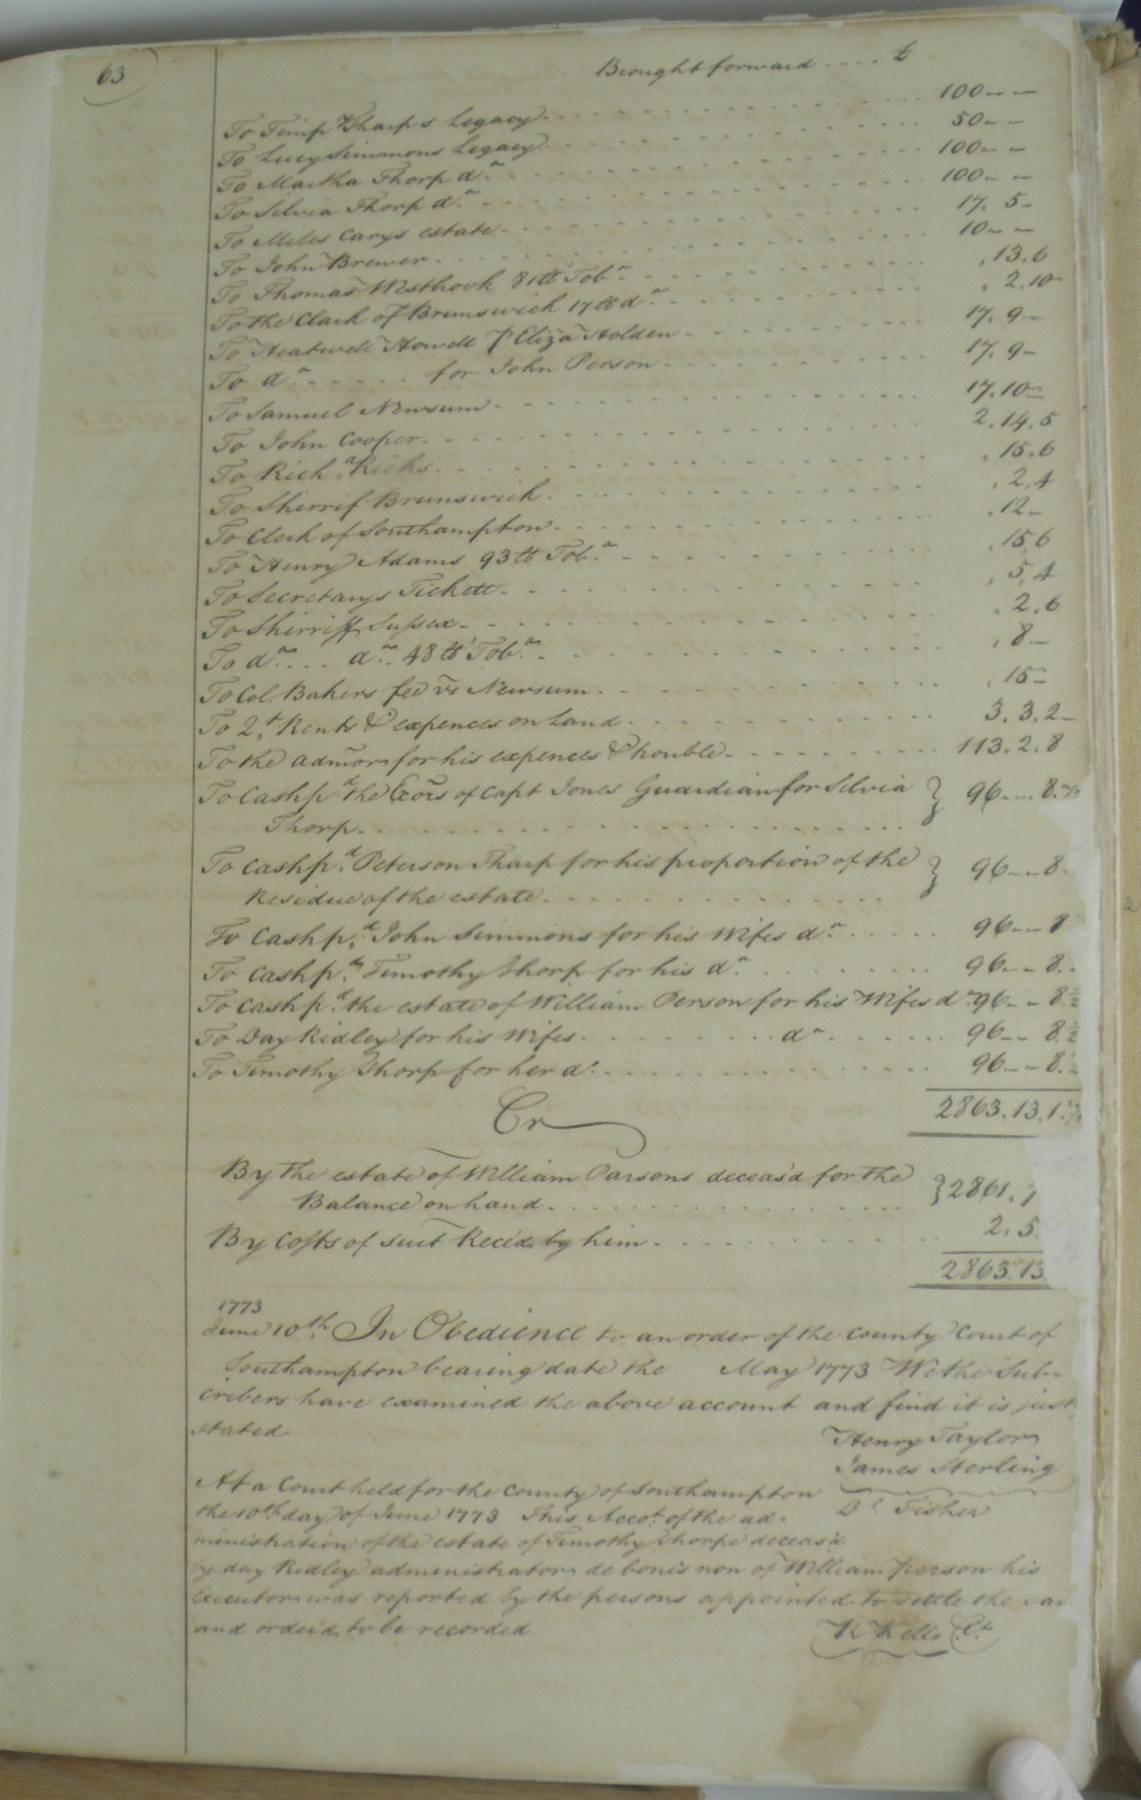 63
Brought forward .... £
To Temp Tharps Legacy 100 – –
To Lucy Simmons Legacy 50 – –
To Martha Thorp do 100 – –
To Silvia Thorp do 100 – –
To Miles Carys estate 17. 5 –
To John Brewer 10 – –
To Thomas Westbrook 81 lb Tobo .13.6
To the Clark of Brunswick 17 lb do .2.10
To Heatwell Howell Eliza Holden 17. 9 –
To do for John Person 17. 9 –
To Samuel Newsum 17.10 –
To John Cooper 2.14.5
To Richd Ricks .15.6
To Sherrif Brunswick .2.4
To Clerk of Southampton .12 –
To Henry Adams 93 lb Tobo .15.6
To Secretarys Tickett .5.4
To Sherriff Sussex .2.6
To do do 48 lb Tobo .8 –
To Col. Bakers fee vs Newsum .15 –
To Qt Rents & expences on Land 3.3.2 –
To the admor for his expences & trouble 113.2.8
To Cash pd the Exors of Capt Jones Guardian for Silvia } 96 – 8.
Thorp
To Cash pd Peterson Tharp for his proportion of the } 96 – 8.
Residue of the estate
To Cash pd John Simmons for his Wifes do 96 – 8
To Cash pd Timothy Thorp for his do 96 – 8.
To Cash pd the estate of William Person for his Wifes do 96 – 8.½
To Day Ridley for his Wifes do 96 – 8.½
To Timothy Thorp for her do 96 – 8.
2863.13.1.
Cr
By the estate of William Parsons deceas'd for the } 2861.
Balance on hand
By Costs of suit Rece'd by him 2.5.
2863.13
1773
June 10th In Obedience to an order of the County Court of
Southampton bearing date the May 1773 We the Sub-
cribers have examined the above account and find it is just
stated
Henry Taylor
James Sterling
At a Court held for the County of Southampton
Dl Fisher
the 10th day of June 1773 This Accot. of the ad-
ministration of the estate of Timothy Thorpe deceas'd
by day Ridley administrator de bonis non of William person his
Executor was reported by the persons appointed to settle the
and order'd to be recorded
R Kello Ct